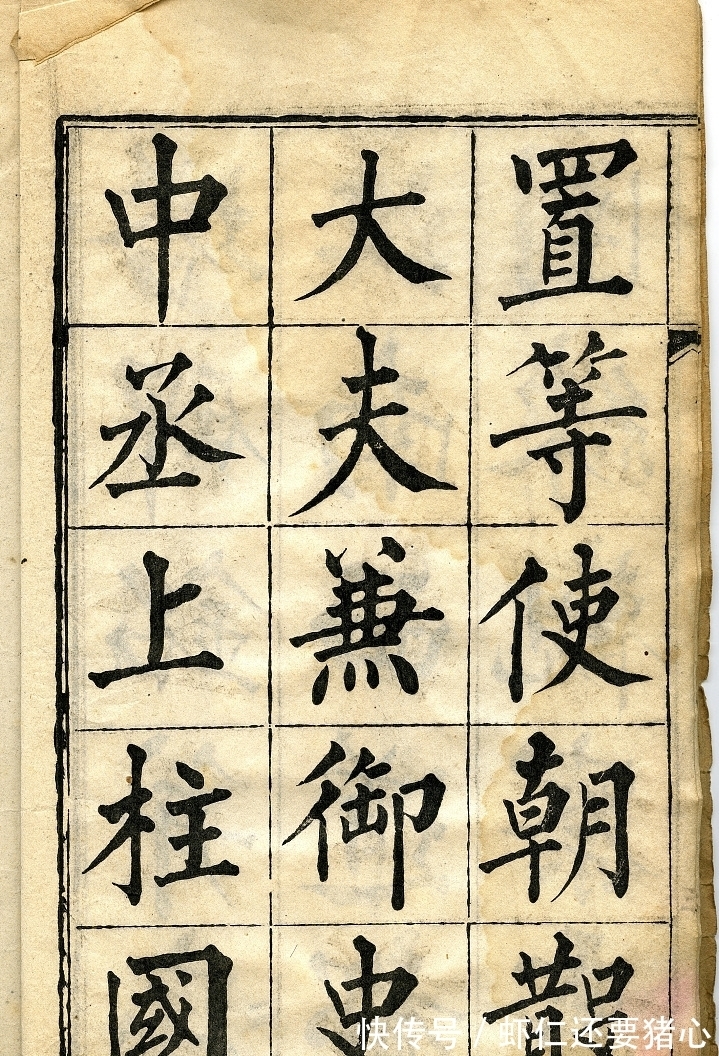 置等使朝散
大夫兼御史
中丞上柱國
快传号 / 虾仁还要猪心